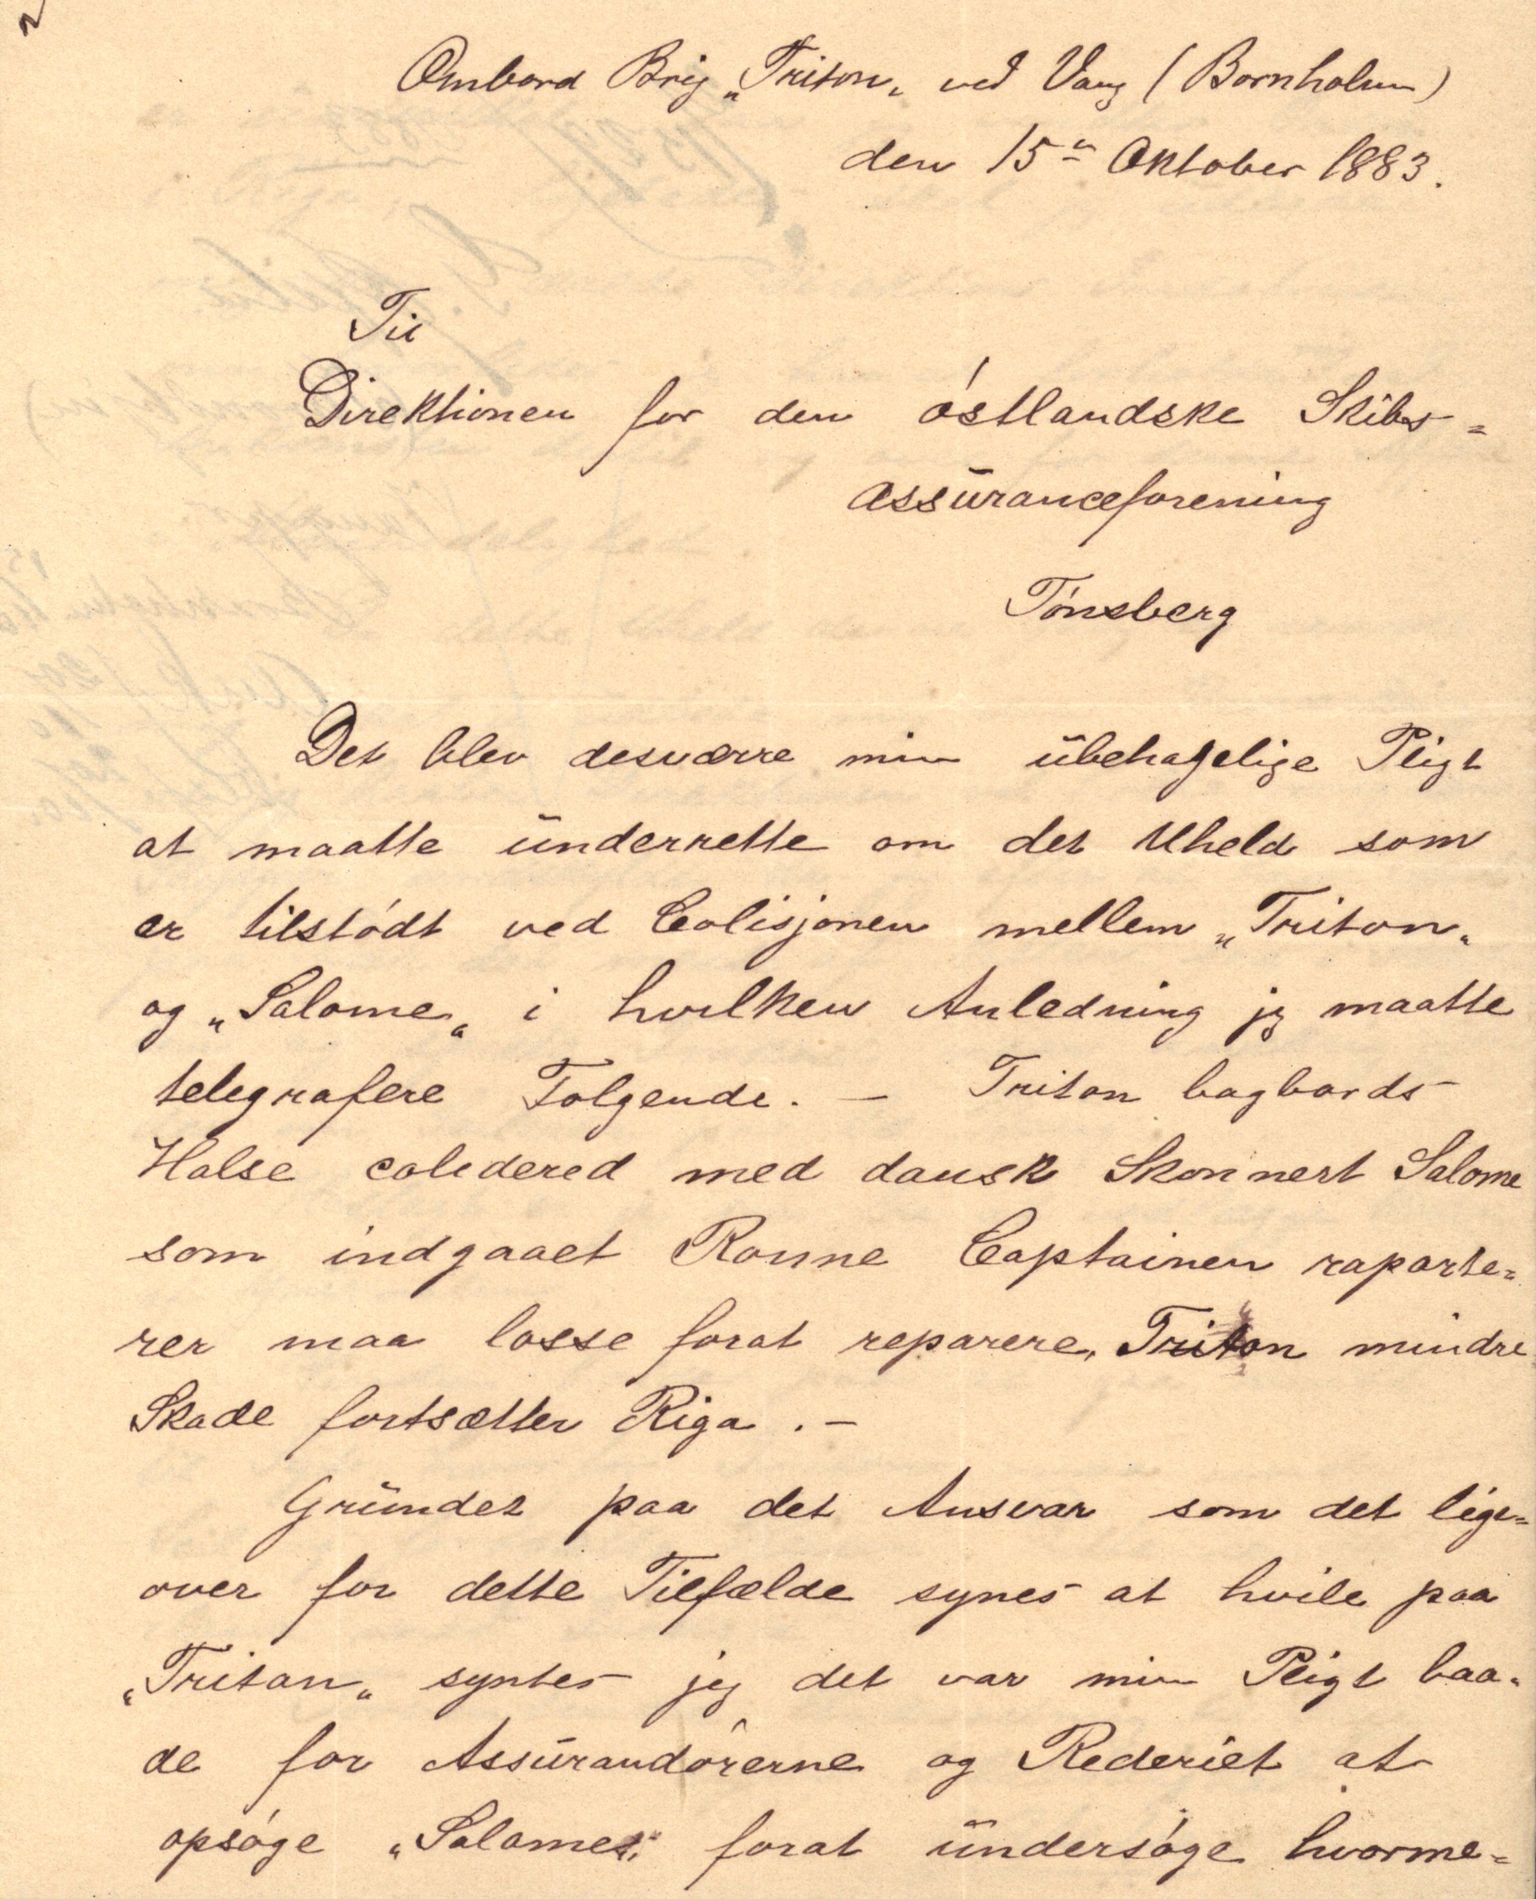 Ombord Brig „Triton„ ved Vang (Bornholm)
den 15n Oktober 1883.
Til
Direktionen for den östlandske Skibs=
assüranceforening
Tönsberg
Det blev desværre min übehagelige Pligt
at maatte ünderrette om det Uheld som
er tilstödt ved Colisjonen mellem „Triton„
og „Salome„ i hvilken Anledning jeg maatte
telegrafere Følgende. — Triton bagbords
Halse colidered med dansk Skonnert Salome
som indgaaet Rønne Captainen raporte=
rer maa losse forat reparere, Triton mindre
Skade fortsætter Riga . —
Gründet paa det Ansvar som det lige=
over for dette Tilfælde synes at hvile paa
„Triton„ syntes jeg det var min Pligt baa=
de for Assürandörerne og Rederiet at
opsöge „Salome„ forat ündersöge hvorme=